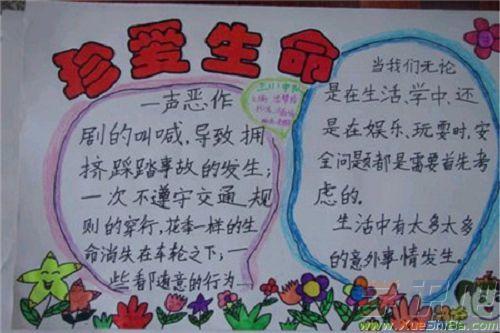 珍爱生命
一声恶作
剧的叫喊,导致拥
挤踩踏事故的发生;
一次不遵守交通规
则的穿行,花季一样的生
命消失在车轮之下;一
些看都随意的行为一
当我们无论
是在生活、学中,还
是在娱乐、玩耍时,安
全问题都是需要首先考
虑的。
生活中有太多太多
的意外事情发生。
www.XueShiBa.com